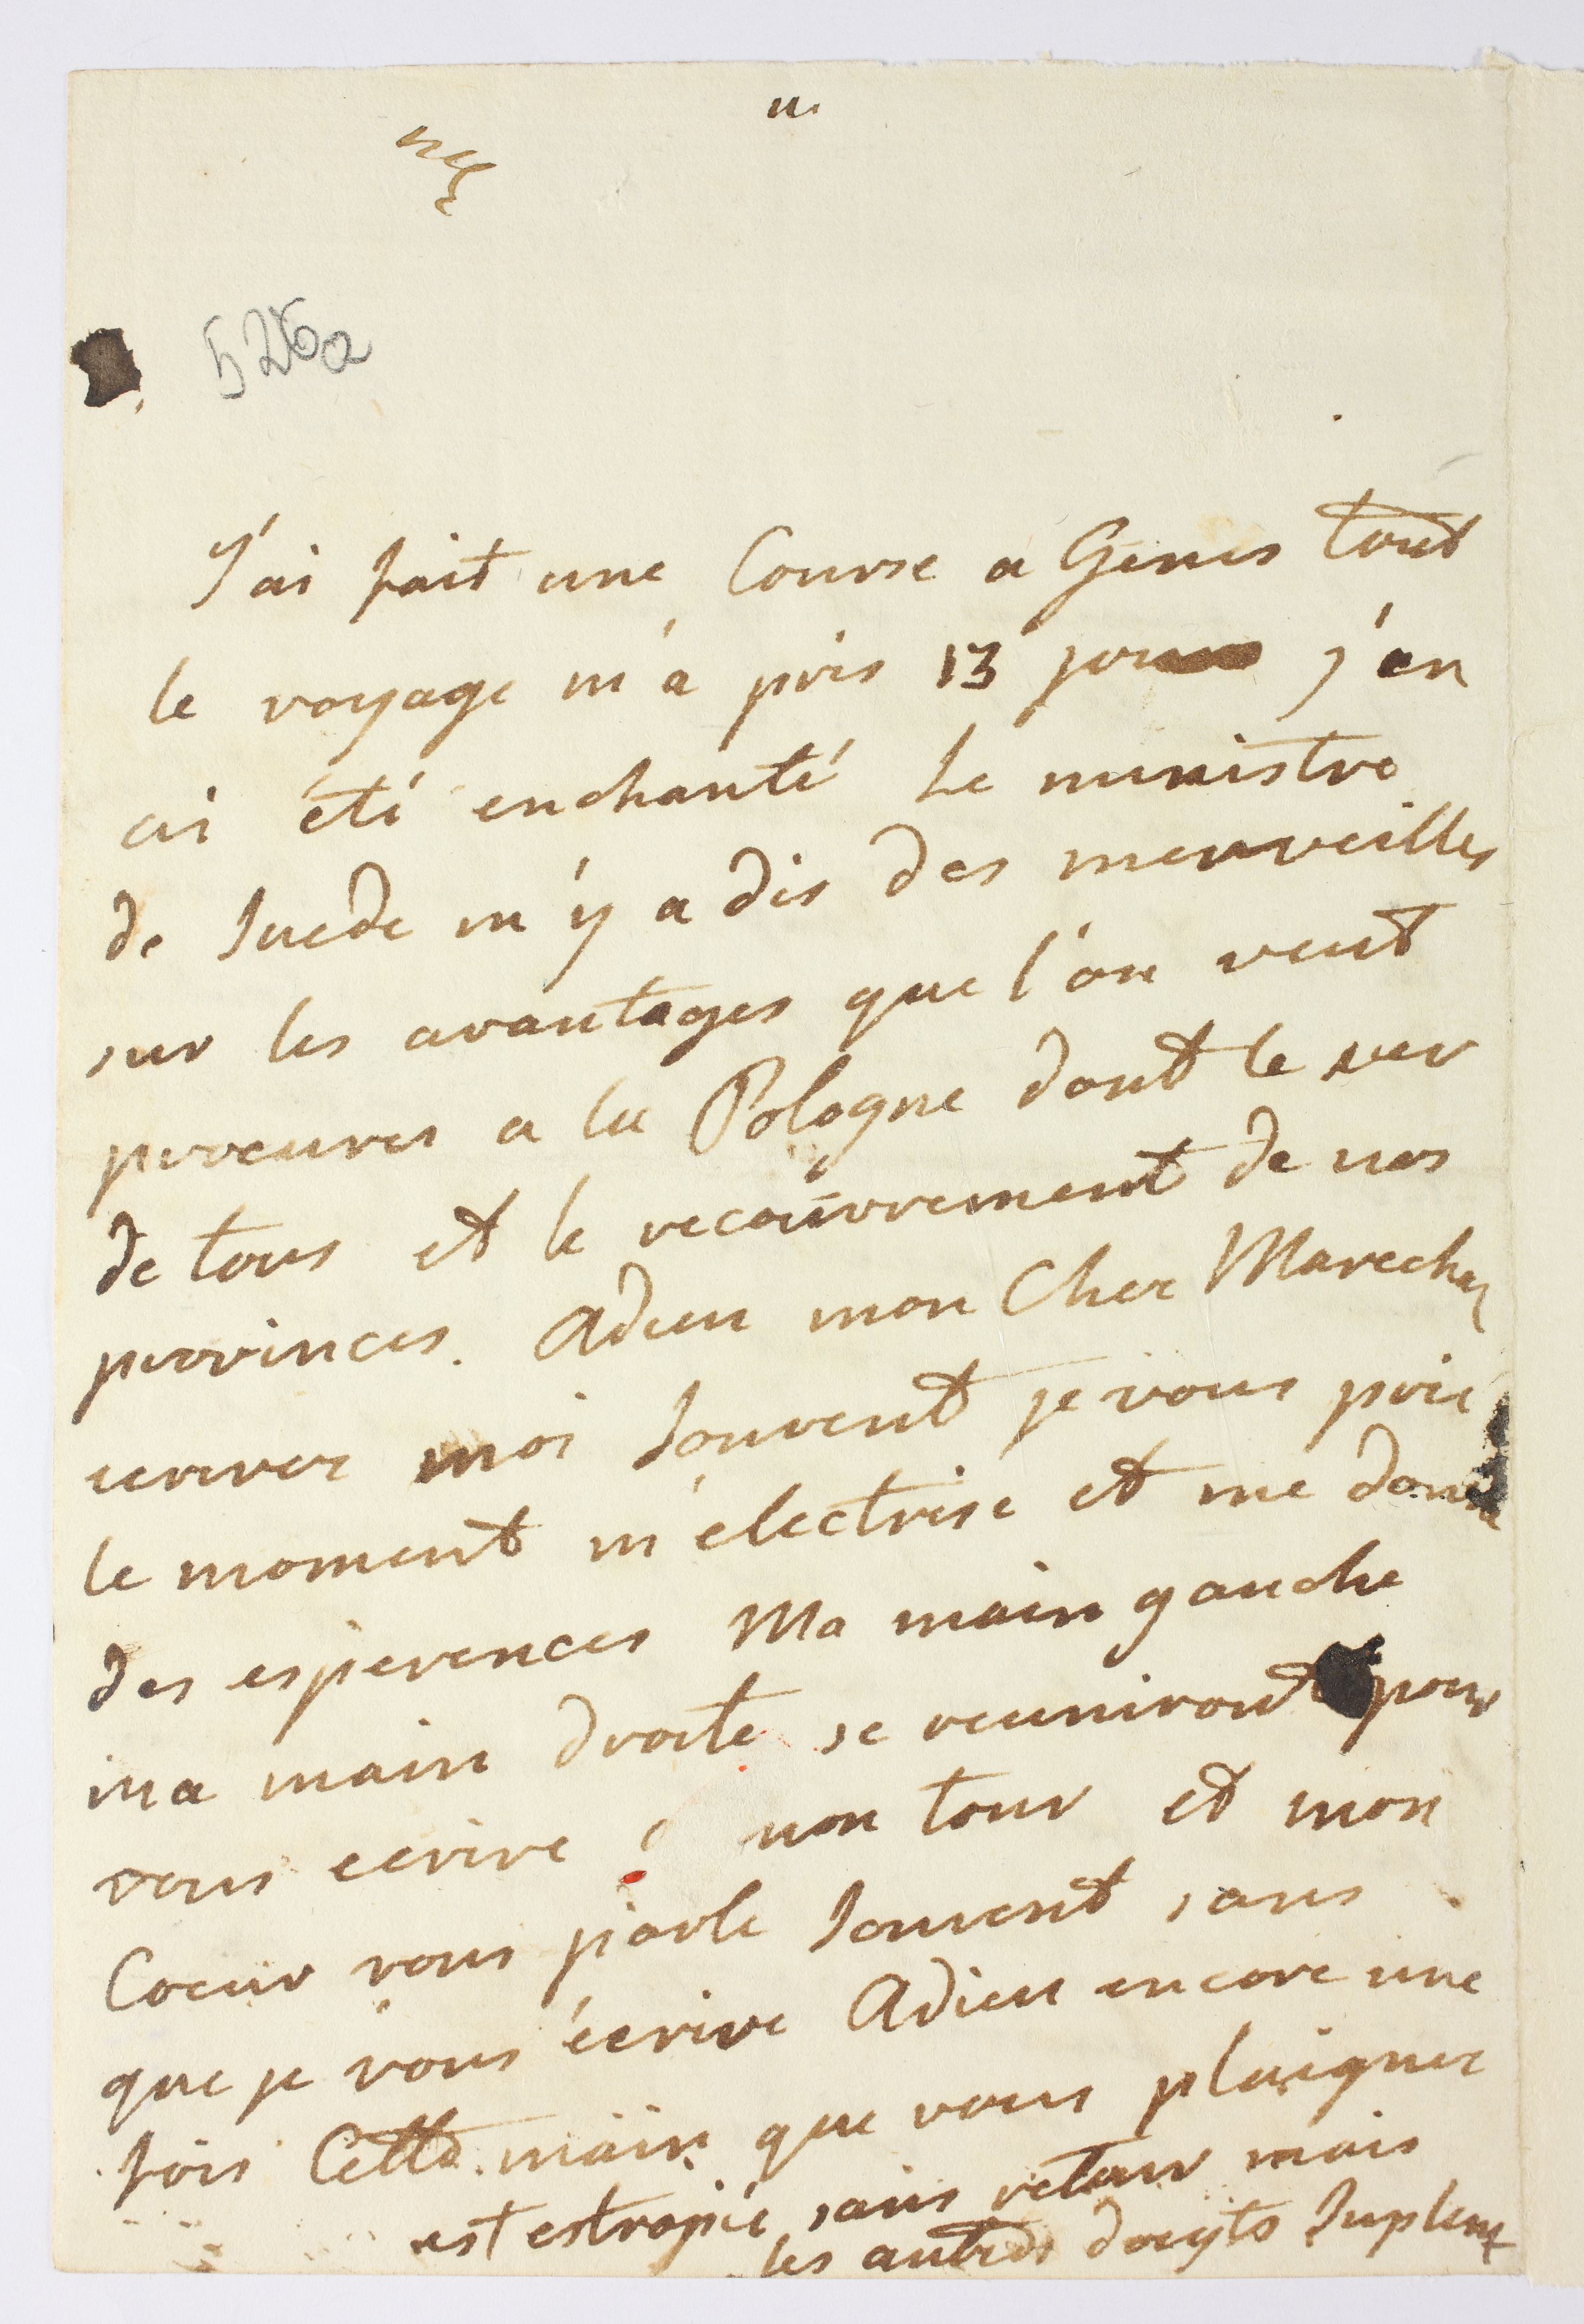 526a
J'ai fait une Course a Gènes tout
le voyage m'a pris 13 jours j'en
ai été enchanté Le ministre
de Suede m'y a dis des merveilles
sur les avantages que l'on veut
procurer a la Pologne dont le
de tous et le recouvrement de nos
provinces. Adieu mon Cher Marechal
ecrivez moi Souvent je vous prie
le moment m'electrise et me donne
des esperences Ma main gauche
ma main droite se reuniront pour
vous ecrire mon tour et mon
Coeur vous parle Souvent sans
que je vous écrive Adieu encore une
fois Cette main que vous plaignez
est estropiée sans retour mais
les autres doigts Suplent